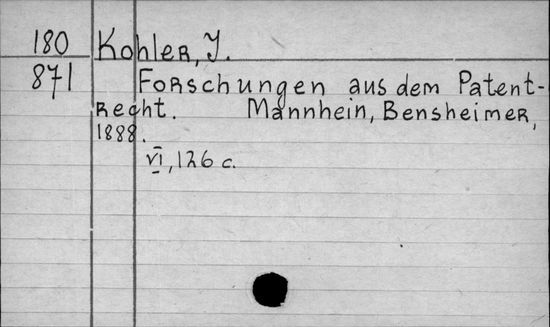 180 Kohler, J.
871 Forschungen aus dem Patent-
recht. Mannhein, Bensheimer,
1888.
VI, 126 c.